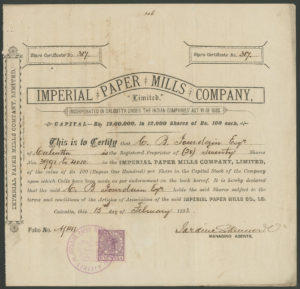 Share Certificate No. 387.
Share Certificate No. 387.
IMPERIAL PAPER MILLS COMPANY,
"Limited,"
INCORPORATED IN CALCUTTA UNDER THE INDIAN COMPANIES' ACT VI OF 1882.
CAPITAL—Rs. 12,00,000, in 12,000 Shares of Rs. 100 each.
This is to Certify that C. B. Esqr
of Calcutta is the Registered Proprietor of Shares
Nos. to in the IMPERIAL PAPER MILLS COMPANY, LIMITED,
of the value of Rs. 100 (Rupees One Hundred) per Share in the Capital Stock of the Company
upon which Calls have been made as per endorsement on the back hereof. It is hereby declared
that the said C. B. Esqr holds the said Shares subject to the
terms and conditions of the Articles of Association of the said IMPERIAL PAPER MILLS CO., LD.
Calcutta, this day of February
Folio No.
MANAGING AGENTS.
IMPERIAL PAPER MILLS COMPANY, LIMITED.